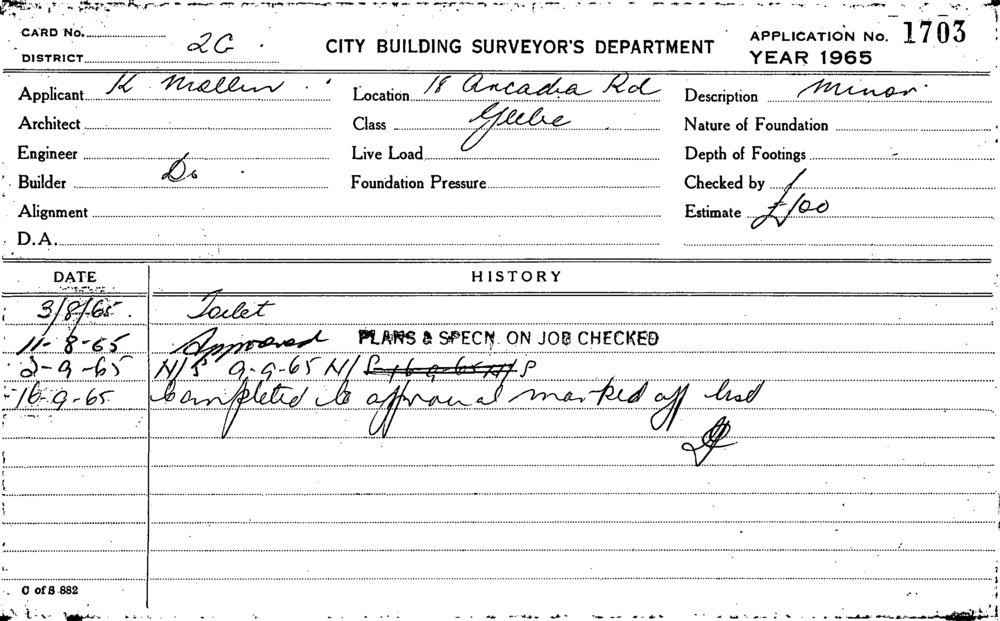 CARD No.
DISTRICT 2G
CITY BUILDING SURVEYOR'S DEPARTMENT
APPLICATION No. 1703
YEAR 1965
Applicant K Location 18 Arcadia Rd Description Minor
Architect Class Glebe Nature of Foundation
Engineer Live Load Depth of Footings
Builder Do Foundation Pressure Checked by
Alignment Estimate £100
D.A.
DATE HISTORY
3/8/65 Toilet
11-8-65 Approved PLANS & SPECN. ON JOB CHECKED
2-9-65 N/S 9-9-65 N/S 16-9-65 N/S
16-9-65 Completed to approval marked off
C of S 882